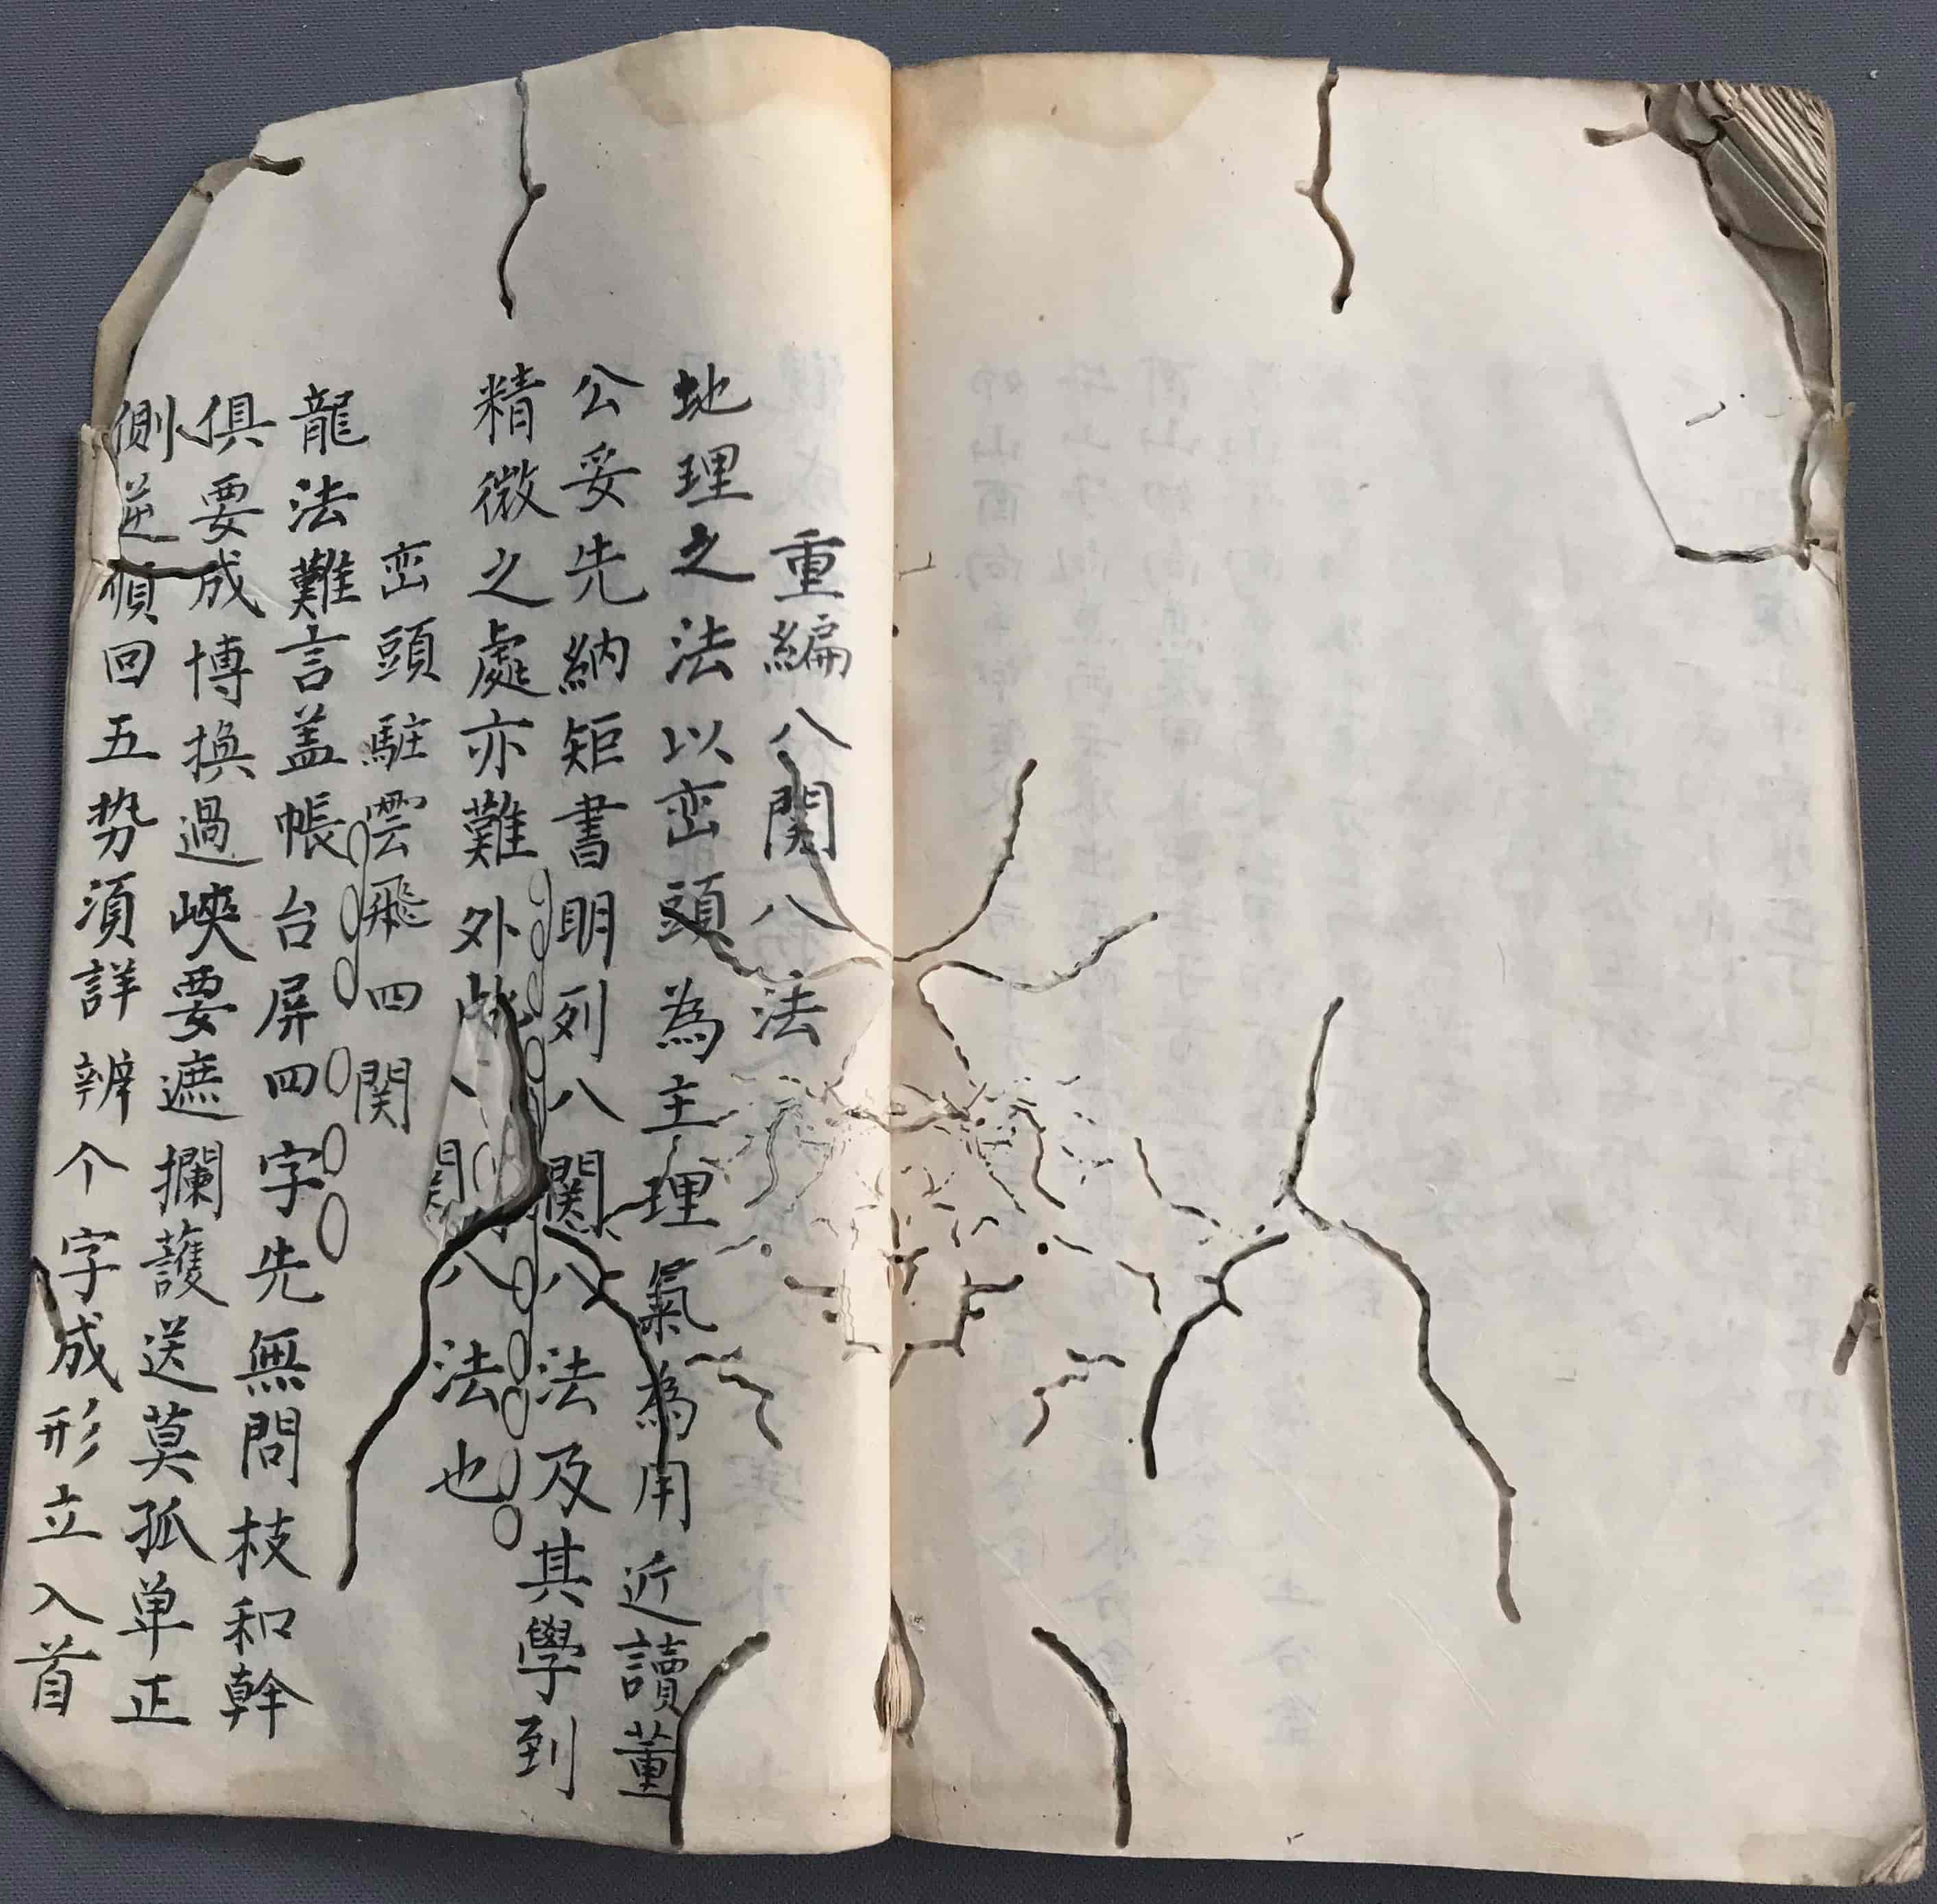 重編八関八法
地理之法以峦頭為主理氣為用近讀董
公妥先納矩書明列八関八法及其學到
精微之處亦難外此八関八法也
峦頭駐雲飛四関
龍法難言盖帳台屏四字先無問枝和幹
俱要成博換過峽要遮攔護送莫孤单正
側逆順回五势須詳辨个字成形立入首